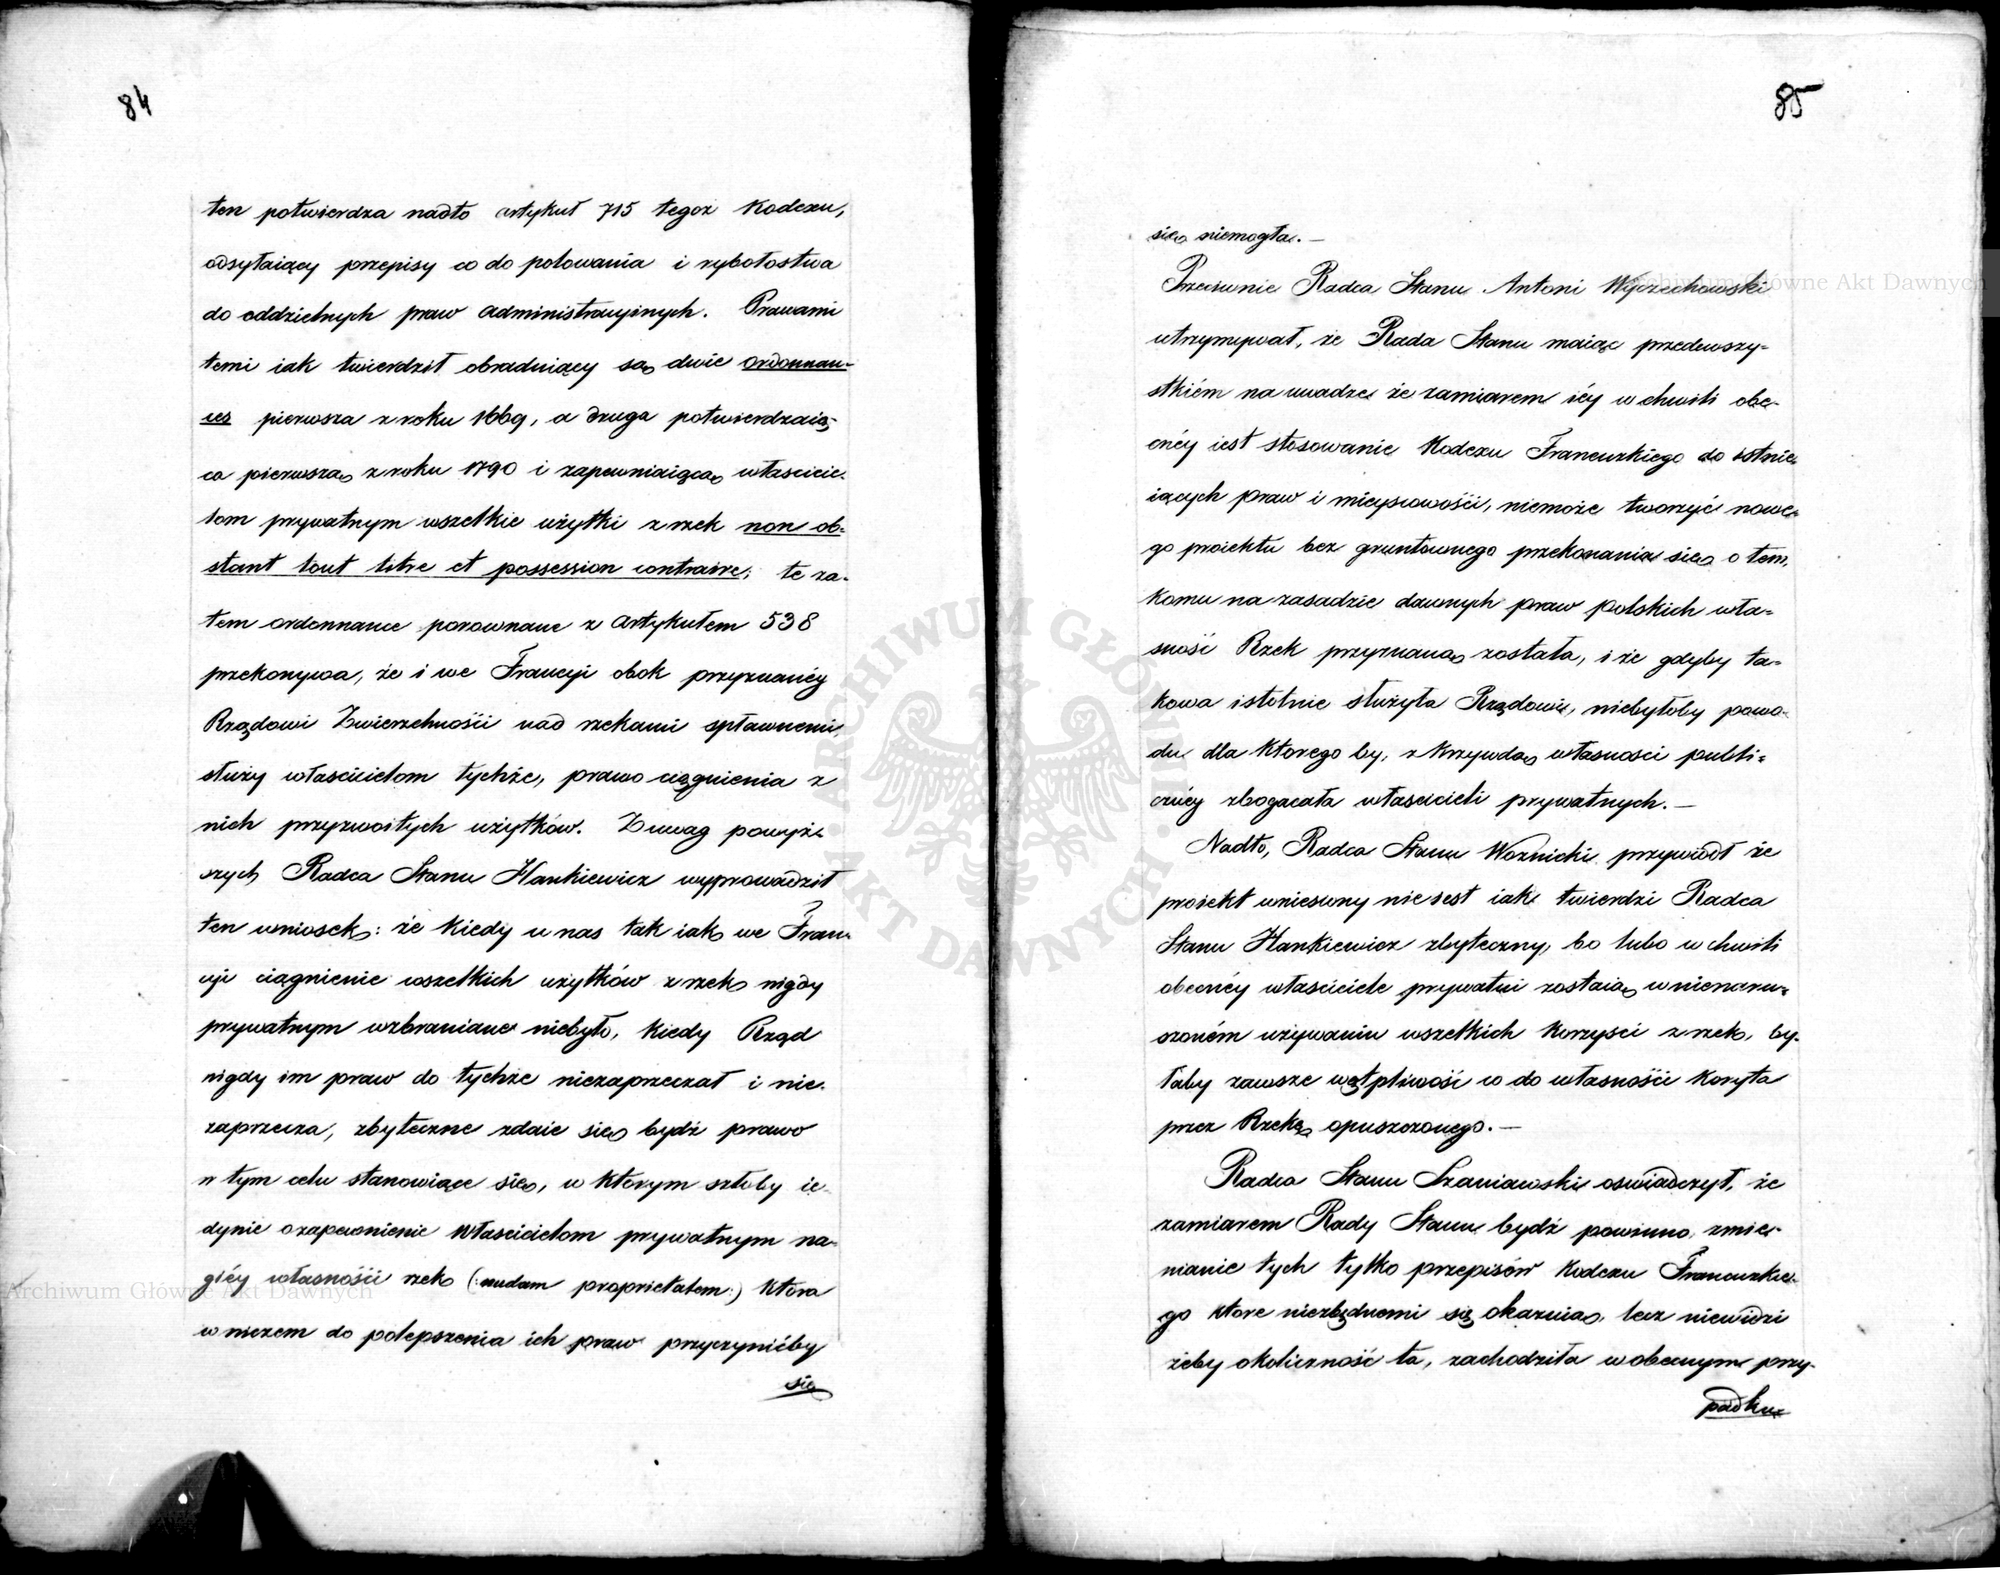 84
ten potwierdza nadto artykuł 715 tegoż Kodexu,
odsyłaiący przepisy co do polowania i rybołostwa
do oddzielnych praw administracyinych. Prawami
temi iak twierdził obraduiący są dwie ordonnan-
ces pierwsza z roku 1669, a druga potwierdzaią-
ca pierwszą z roku 1790 i zapewniaiąca właścicie-
lom prywatnym wszelkie użytki z rzek non ob-
stant tout titre et possession contraire; te za-
tem ordonnance porownane z artykułem 538
przekonywa, że i we Francyi obok przyznanéy
Rządowi Zwierzchności nad rzekami spławnemi,
służy właścicielom tychże, prawo ciągnienia z
nich przyzwoitych użytków. Z uwag powyż-
szych Radca Stanu Hankiewicz wyprowadził
ten wniosek: że kiedy u nas tak iak we Fran-
cyi ciągnienie wszelkich użytków z rzek nigdy
prywatnym wzbraniane niebyło, kiedy Rząd
nigdy im praw do tychże niezaprzeczał i nie-
zaprzecza, zbyteczne zdaie się bydź prawo
w tym celu stanowiące się, w którym szłoby ie-
dynie o zapewnienie Właścicielom prywatnym na-
giéy własności rzek (:nudam proprietatem:) która
w niczem do polepszenia ich praw przyczynićby
się
85
się niemogła. —
Przeciwnie Radca Stanu Antoni Wyczechowski
utrzymywał, że Rada Stanu maiąc przedewszy-
stkiém na uwadze że zamiarem iéy w chwili obe-
cnéy iest stosowanie Kodexu Francuzkiego do istnie-
iących praw i mieyscowości, niemoże tworzyć nowe-
go proiektu bez gruntownego przekonania się o tem,
komu na zasadzie dawnych praw polskich wła-
sność Rzek przyznaną została, i że gdyby ta-
kowa istotnie służyła Rządowi, niebyłoby powo-
du dla którego by, z krzywdą własności publi-
cznéy zbogacała właścicieli prywatnych. —
Nadto, Radca Stanu Woznicki przywiódł że
proiekt wniesiony nie iest iak twierdzi Radca
Stanu Hankiewicz zbyteczny, bo lubo w chwili
obecnéy właściciele prywatni zostaią w nienaru-
szoném używaniu wszelkich korzyści z rzek, by-
łaby zawsze wątpliwość co do własności koryta
przez Rzekę opuszczonego. —
Radca Stanu Szaniawski oswiadczył, że
zamiarem Rady Stanu bydź powinno, zmie-
nianie tych tylko przepisów Kodexu Francuzkie-
go które niezbędnemi się okazuią, lecz niewidzi
żeby okoliczność ta, zachodziła w obecnym przy-
padku